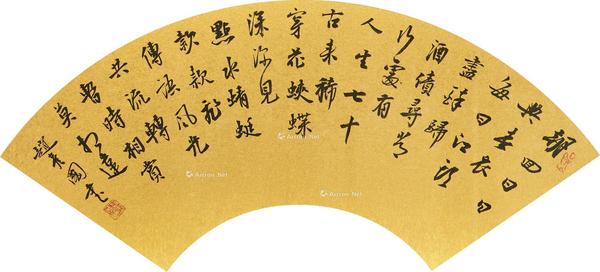 朝回日日
典春衣
每日江頭
盡醉歸
酒債尋常
行處有
人生七十
古來稀
穿花蛺蝶
深深見
點水蜻蜓
款款飛
傳語風光
共流轉
暫時相賞
莫相違
Artron.Net
Artron.Net
Artron.Net